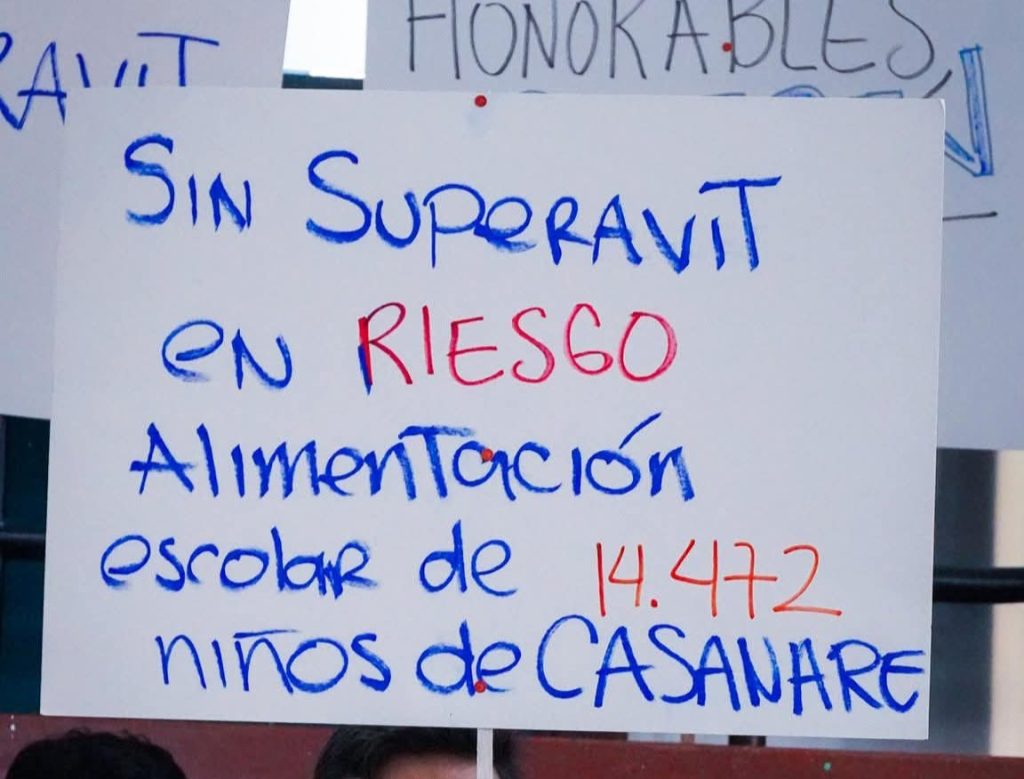 HONORABLES,
RAVIT
SIN SUPERAVIT
EN RIESGO
AlimenTación
escolar de 14.472
niños de CASANARE